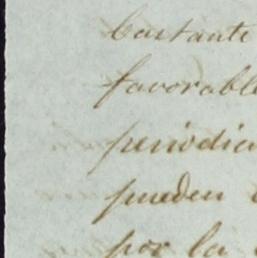 bastante
favorable
periodic
pueden
por la